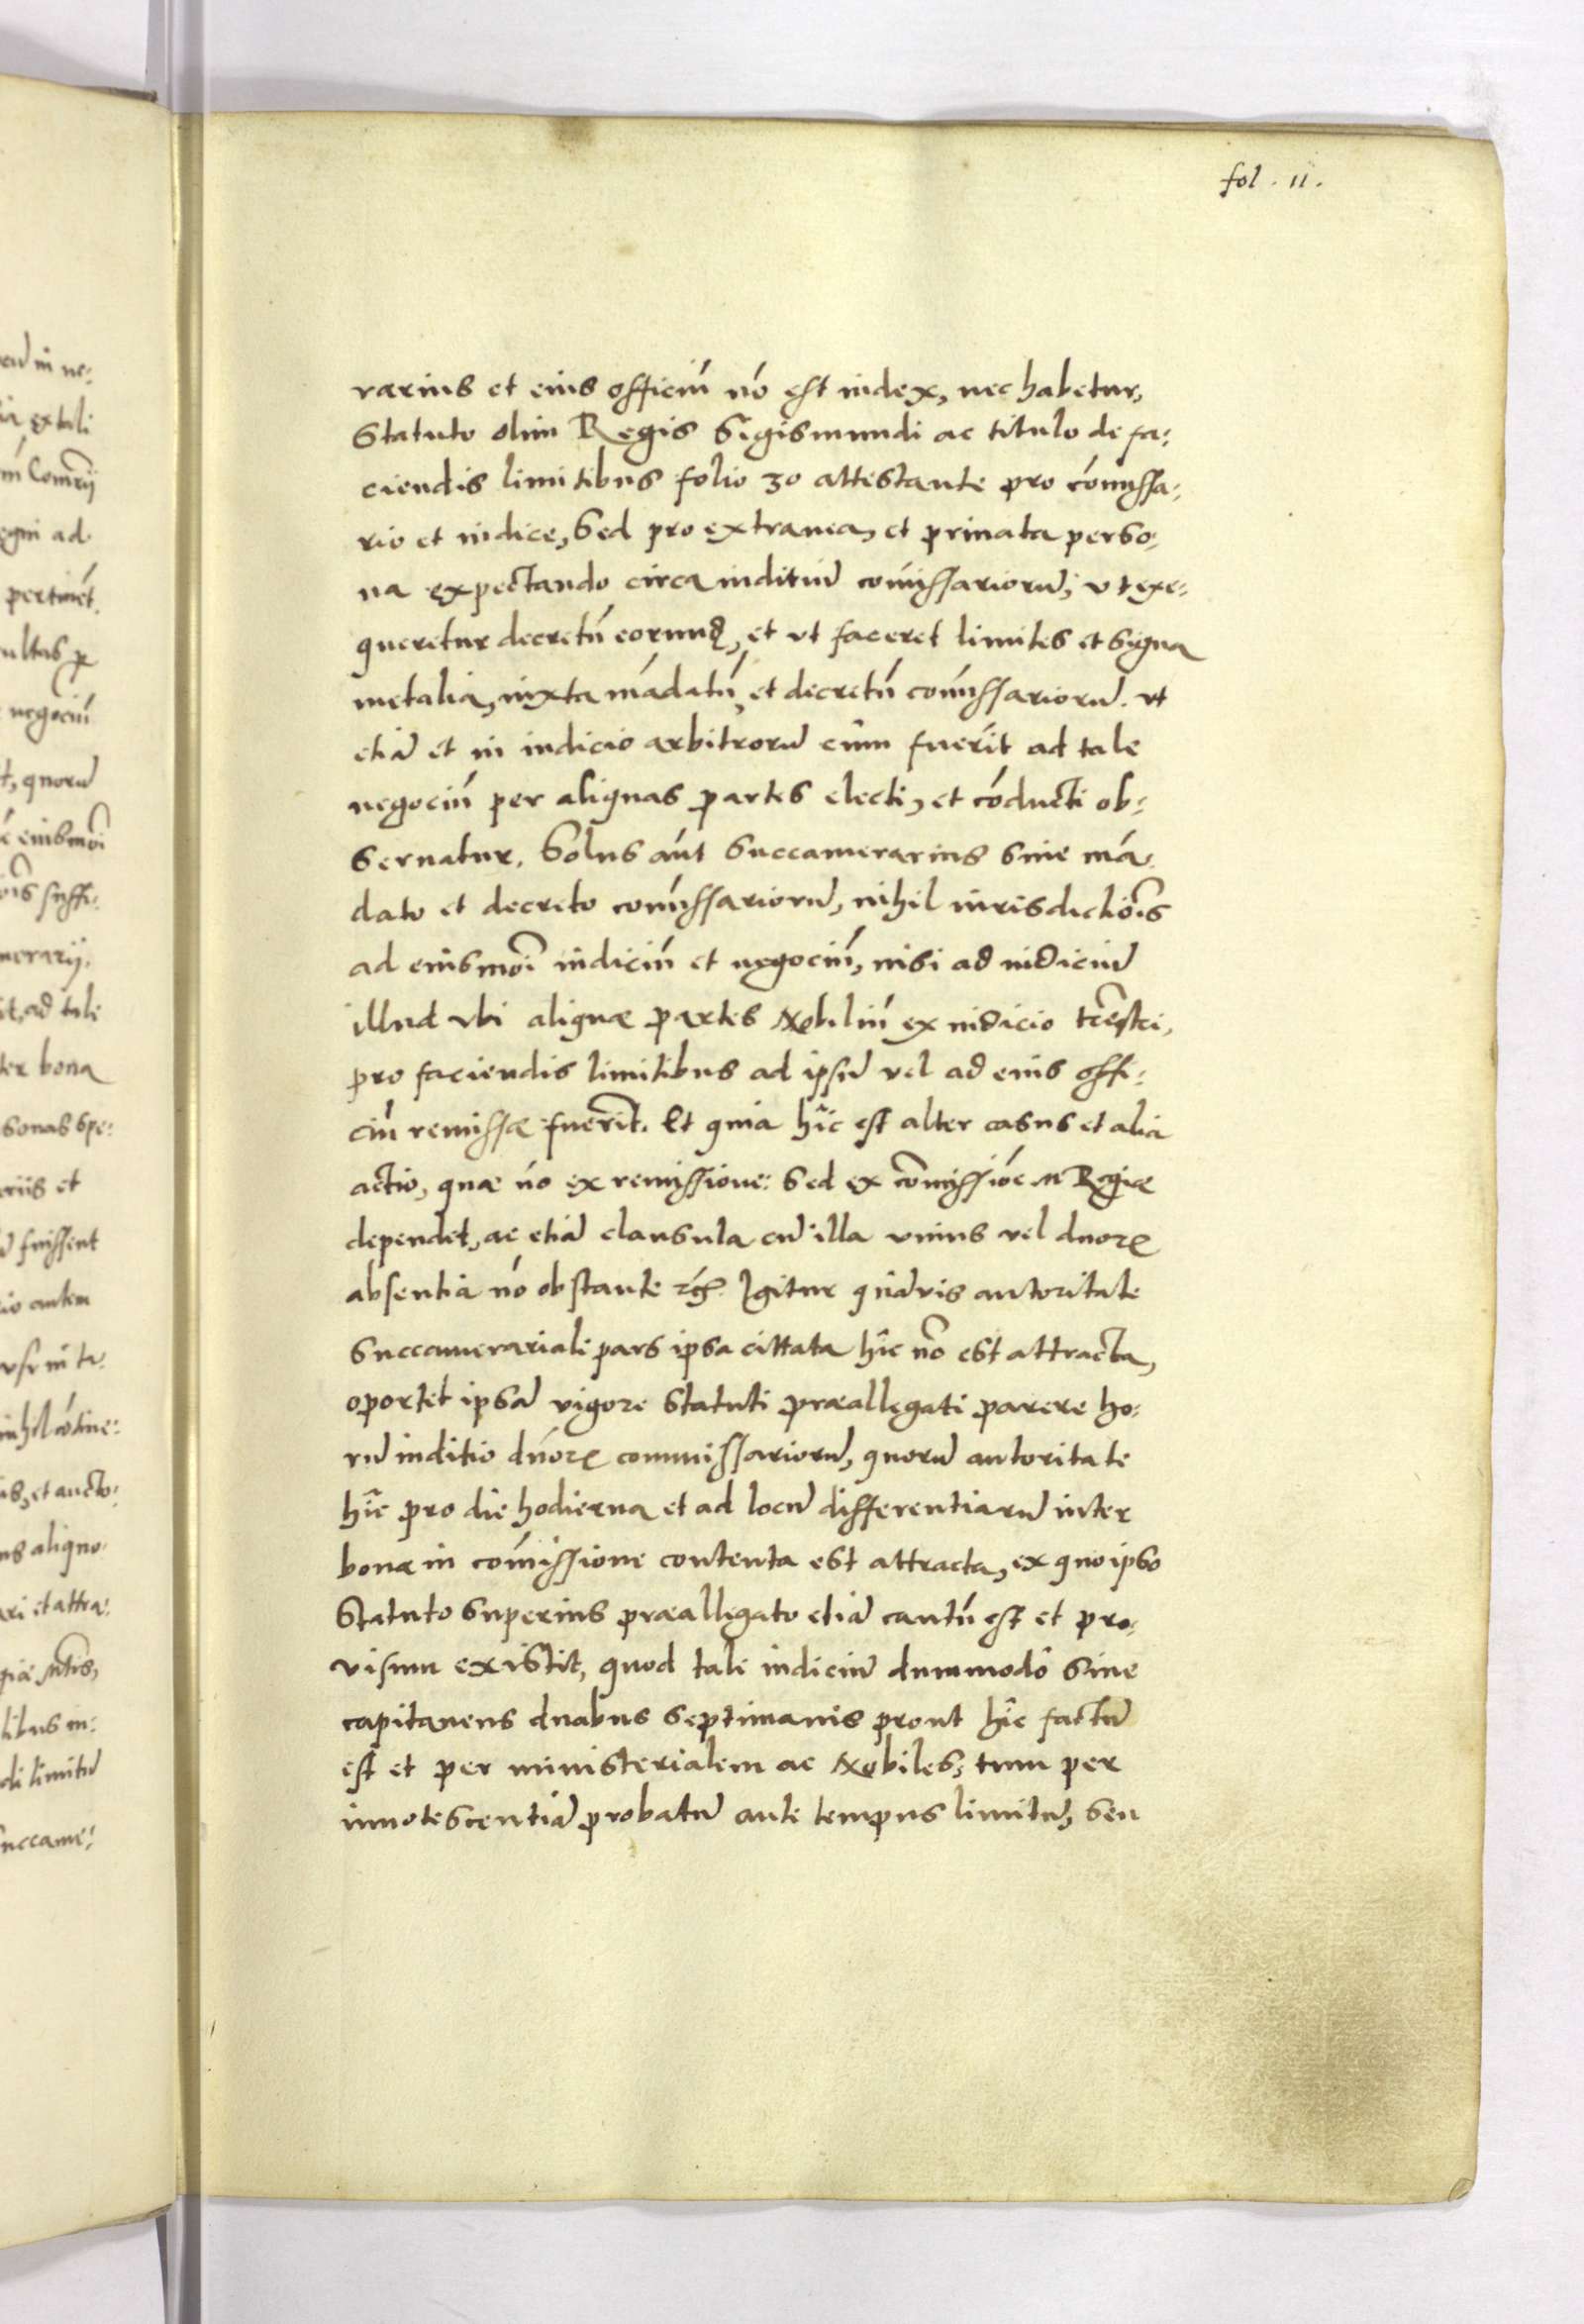 fol. 11.
rarius et eius officiū nō est iudex, nec habetur,
Statuto olim Regis Sigismundi ac titulo de fa:
ciendis limitibus folio 30 attestante pro cōmissa:
rio et iudice, Sed pro extranea, et priuata perso:
na expectando circa inditiū comissariorū, vt exe:
queretur decretū eorumq, et vt faceret limites et signa
metalia, iuxta mādatū, et decretū comissariorū. vt
etiā et in iudicio arbitrorū cùm fuerīt ad tale
negociū per aliquas partes electi, et cōducti ob:
seruatur. Solus aūt Succamerarius sine mā:
dato et decreto comissariorū, nihil iurisdictiōis
ad eiusmōi iudiciū et negociū, nisi ad iudiciū
illud vbi aliquæ partes Nobiliū ex iudicio trēstri,
pro faciendis limitibus ad ipsū vel ad eius offi:
ciū remissæ fuerīt. Et quia hîc est alter casus et alia
actio, quæ nō ex remissione: sed ex comissiōe M Regiæ
dependet, ac etiā clausula cū illa vnius vel duorꝝ
absentia nō obstante rc̄. Igitur quāvis autoritate
Succamerariali pars ipsa cittata hîc nō est attracta,
oportet ipsā vigore Statuti præallegati parere ho:
rū inditio dn̄orꝝ commissariorū, quorū autoritate
hîc pro die hodierna et ad locū differentiarū inter
bona in comissione contenta est attracta, ex quo ipso
Statuto superius præallegato etiā cautū est et pro:
visum existit, quod tale iudiciū dummodò sine
capitaneus duabus septimanis prout hîc factū
est et per ministerialem ac Nobiles, tum per
innotescentiā probatū ante tempus limitū, seu